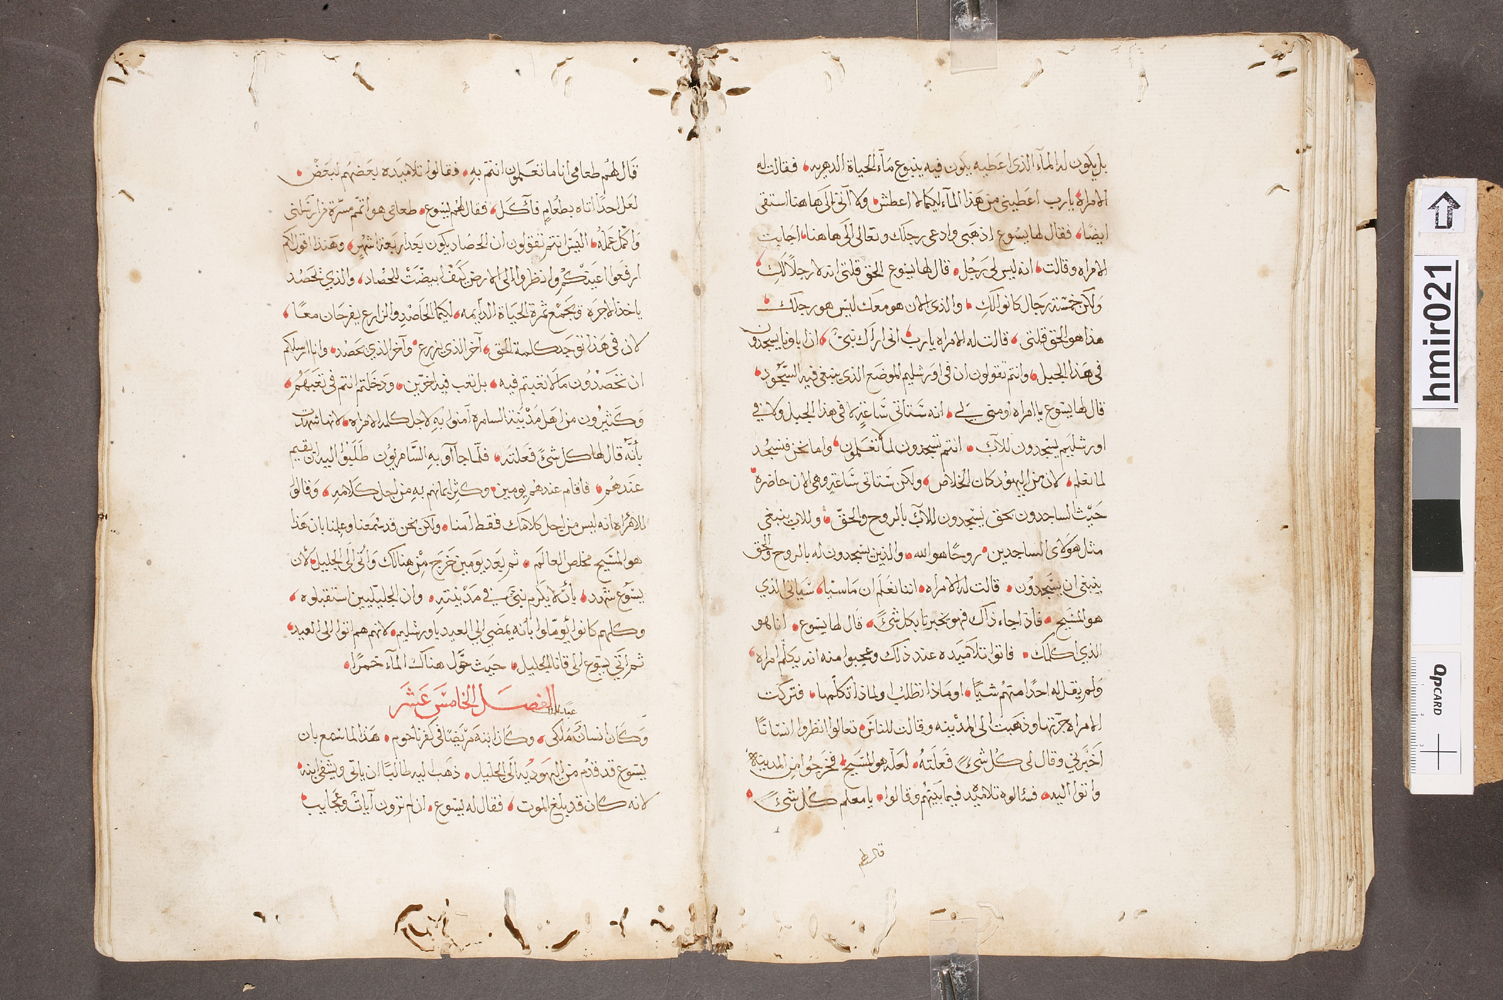 بل يكون له الماء الذي اعطيه يكون فيه ينبوع مآء الحياة الدهريه، فقالت له
الامراه يارب اعطيني من هذا المآء ليكما لا اعطش، ولا آتي الى هاهنا استقى
ايضًا، فقال لها يسوع اذهبى وادعى رجلك وتعالى الى هاهنا، اجابت
الامراه وقالت، انه ليس لي رجل، قال لها يسوع الحق قلتى انه لا رجلًا لكِ
ولكن خمسة رجال كانوا لكِ، والذى الان هو معك ليس هو رجلك
هذا هو الحق قلتى، قالت له الامراه يارب انى اراك نبىً، ان اباونا يسجدون
في هذا الجبل، وانتم تقولون ان في اورشليم الموضع الذى ينبغى فيه السجود،
قال لها يسوع يا امراه اومني بي، انه ستأتى ساعة لا في هذا الجبل ولا في
اورشليم يسجدون للآب، انتم تسجدون لما لا تعلمون، واما نحن فنسجد
لما نعلم، لان من اليهود كان الخلاص، ولكن ستاتى ساعة وهى الان حاضرة
حيث الساجدون بحق يسجدون للآب بالروح والحق، والاب ينبغي
مثل هولاى الساجدين، روحًا هو الله، والذين يسجدون له بالروح والحق
ينبغي ان يسجدون، قالت له الامراه، اننا نعلم ان ماسيا، سياتى الذي
هو المسيح، فاذا جاء ذاك فهو يخبرنا بكل شىً، قال لها يسوع، انا هو
الذى اكلمك، فاتوا تلاميذه عند ذلك وعجبوا منه انه يكلم امراه،
ولم يقل له احدًا منهم شيًا، او ماذا تطلب ولماذا تكلمها، فتركت
الامراه جرّتها وذهبت الى المدينه وقالت للناس، تعالوا انظروا انسانًا
اخبرني وقال لى كل شىءً فعلته، لعله هو المسيح، فخرجوا من المدينة
واتوا اليه، فسالوه تلاميذه فيما بينهم وقالوا، يا معلم كل شىءً،
قال لهم
قال لهم طعامى انا ما تعلمون انتم به، فقالوا تلاميذه بعضهم لبعض،
لعل احدًا اتاه بطعام فأكل، فقال لهم يسوع، طعامي هو اتمم مسرّة من ارسلنى
واكمل عمله، اليس انتم تقولون ان الحصاد يكون بعد اربعة اشهر، وهنذا اقول لكم
ارفعوا اعينكم وانظروا الى الارض كيف ابيضّت للحصاد، والذي يحصد
ياخذ الاجره ويجمع ثمرة الحياة الدايمه، ليكما الحاصد والزارع يفرحان معًا،
لان في هذا توجد كلمة الحق، آخر الذي يزرع وآخر الذي يحصد، وانا ارسلتكم
ان تحصدون ما لا تعبتم فيه، بل تعب فيه اخرين، ودخلتم انتم في تعبهم،
وكثيرون من اهل مدينة السامره آمنوا به لاجل كلمة الامراه، لانها شهدت
بأنّه قال لها كل شىً فعلته، فلمّا جاآو به السامريّون طلبوا اليه ان يقيم
عندهم، فاقام عندهم يومين، وكثر ايمانهم به من اجل كلامه، وقالوا
للامراه انه ليس من اجل كلامك فقط امنا، ولكن نحن قد سمعنا وعلمنا بان هذا
هو المسيح مخلص العالم، ثم بعد يومين خرج من هنالك واتى الى الجليل، لان
يسوع شهد، بان لا يكرم نبيّ في مدينته، وان الجليليين استقبلوه،
وكلهم كانوا يومّلوا بأنه يمضى الى العيد باورشليم، لانهم هم اتوا الى العيد،
ثم اتي يسوع الى قانا الجليل، حيث حوّل هناك المآء خمرًا،
الفصل الخامس عشر
وكان انسانًا ملكى، وكان ابنه مريضًا في كفرناحوم، هذا لما سمع بان
يسوع قد قدم من اليهوديه الى الجليل، ذهب اليه طالبًا ان ياتي ويشفي ابنه،
لانه كان قد بلغ الموت، فقال له يسوع، ان لم ترون آيات وعجايب
hmir021
dpCARD